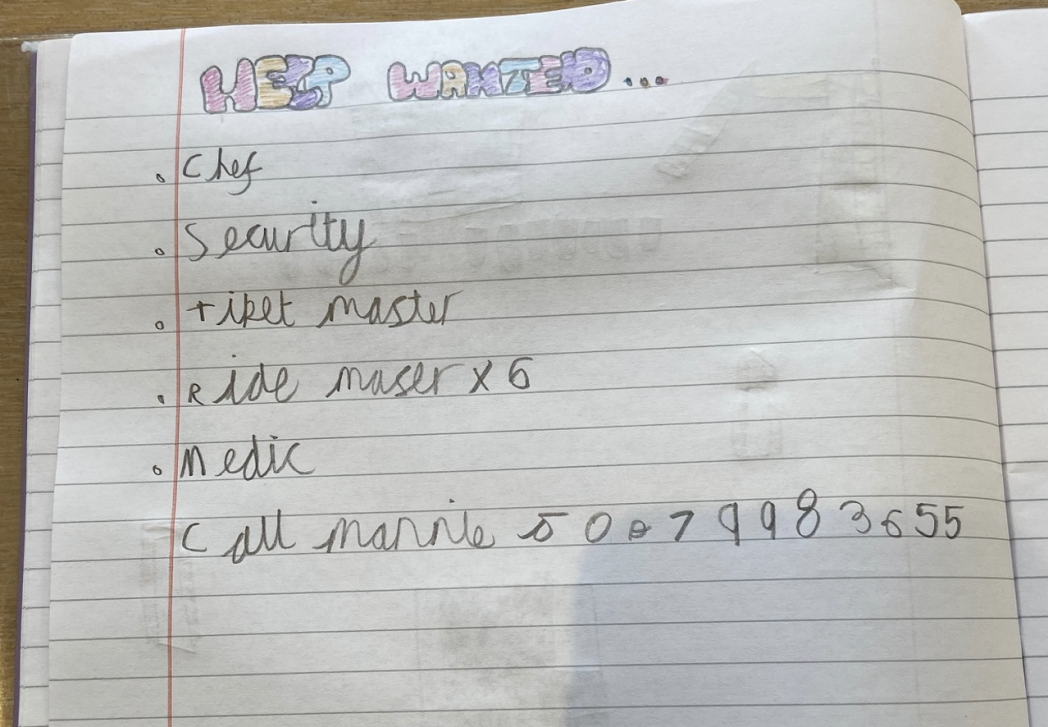 HELP WANTED...
. Chef
. Security
. tiket master
. Ride maser x 6
. medic
Call mannie 50 7998 3655